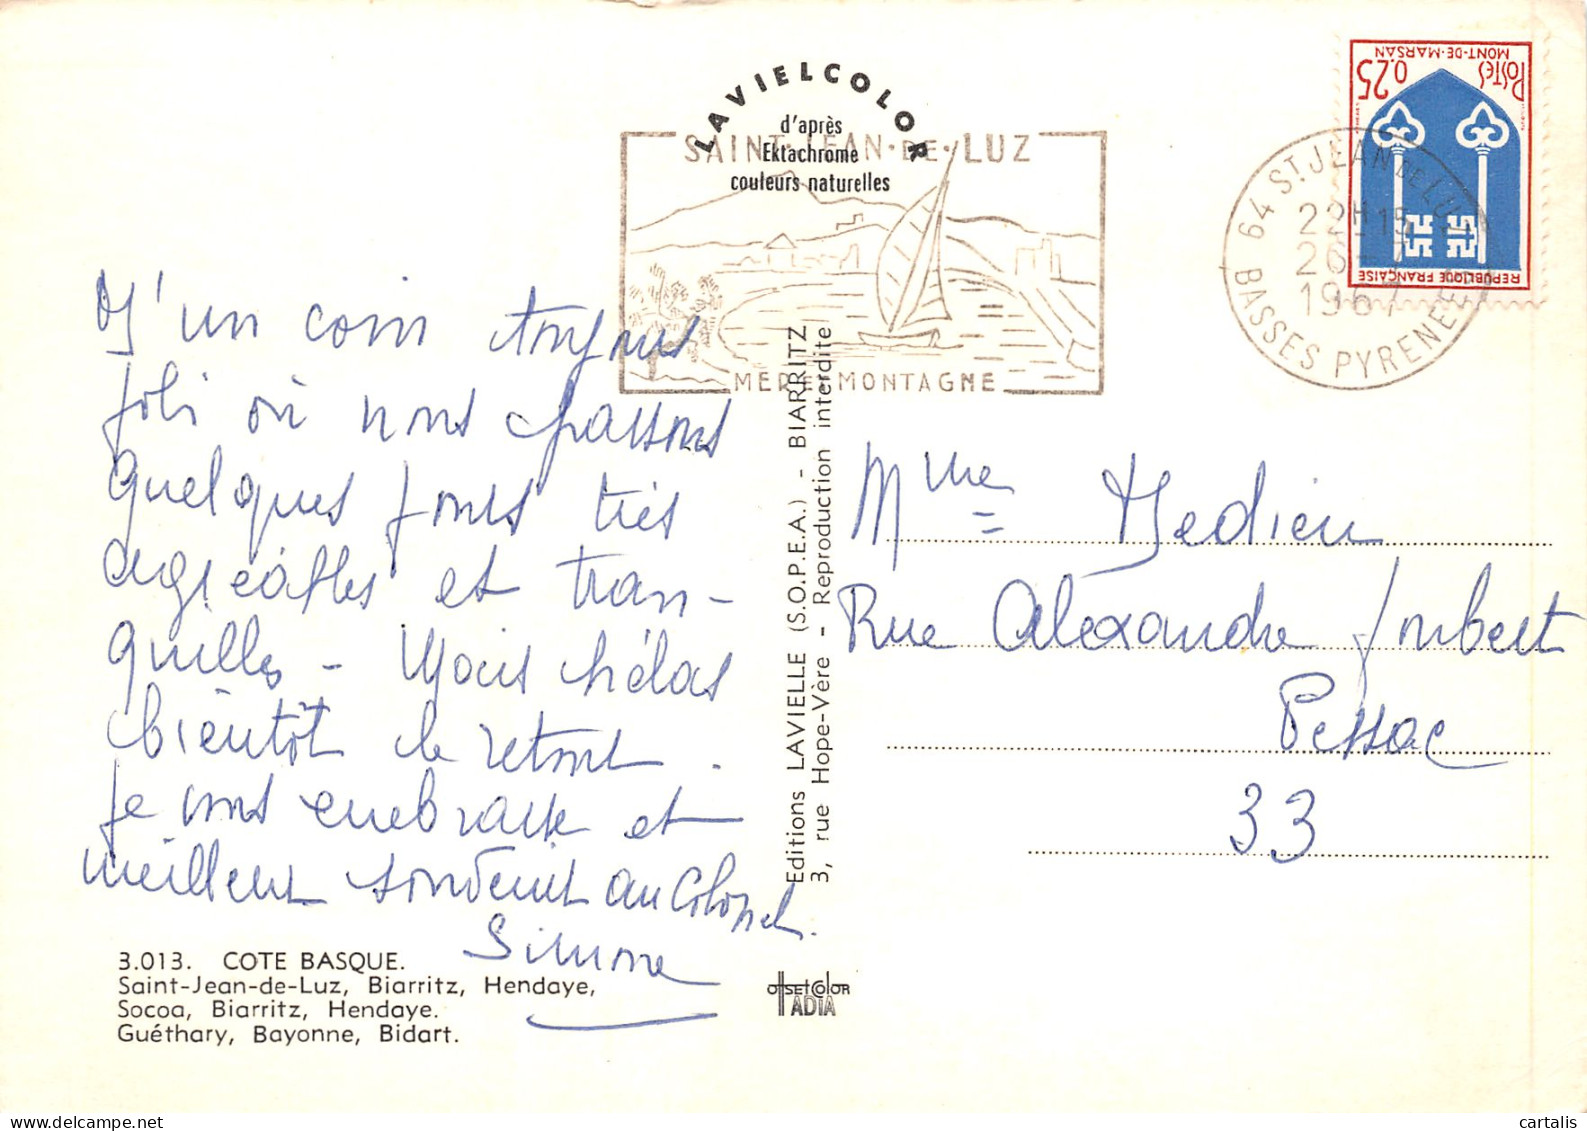 LAVIELCOLOR
d'après
Ektachrome
couleurs naturelles
SAINT·JEAN·DE·LUZ
MER ET MONTAGNE
64 ST. JEAN DE LUZ
22H15
26-7
1967
BASSES PYRENEES
POSTES
0.25
MONT-DE-MARSAN
REPUBLIQUE FRANÇAISE
D'un coin toujours
joli où nous passons
quelques jours très
agréables et tran-
quilles - Mais hélas
bientôt le retour.
Je vous embrasse et
meilleur souvenir au Colonel.
Simone
Mme Hedieu
Rue Alexandre Joubert
Pessac
33
Editions LAVIELLE (S.O.P.E.A.) - BIARRITZ
3, rue Hope-Vère - Reproduction interdite
3.013. COTE BASQUE.
Saint-Jean-de-Luz, Biarritz, Hendaye,
Socoa, Biarritz, Hendaye.
Guéthary, Bayonne, Bidart.
OffSET COLOR
IADIA
cartalis